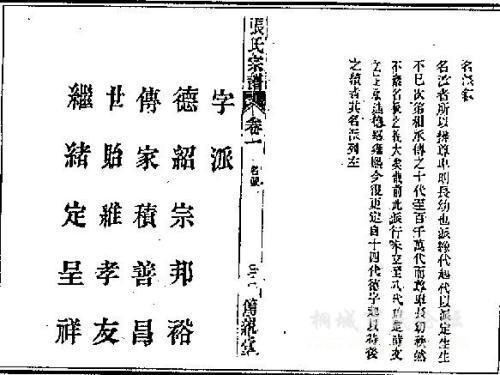 名派
名派者所以辨尊卑明長幼也派綠代起代以派定生生
不已次第相承傳之十代至百千萬代而尊卑長幼秩然
不紊名派之義大矣哉前此派行宋立至八代
今復更定自十四代德字起以待後
之續者其名派列左
張氏宗譜
卷一
名派
字派
德紹宗邦裕
傳家積善昌
世貽維孝友
繼緒定呈祥
桐城